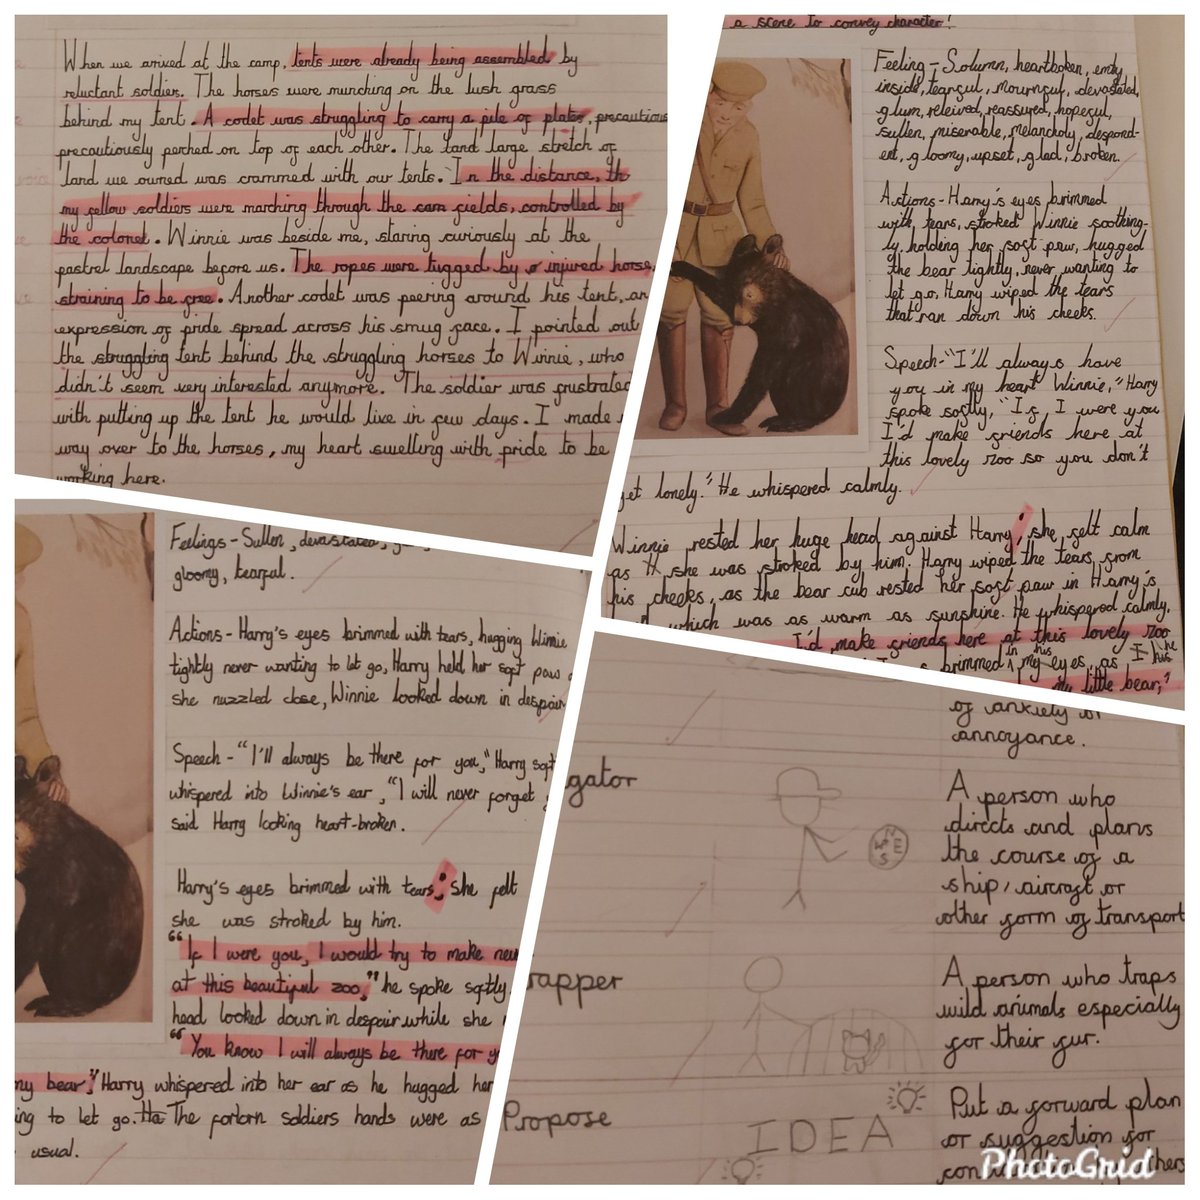 When we arrived at the camp, tents were already being assembled by
reluctant soldiers. The horses were munching on the lush grass
behind my tent. A codet was struggling to carry a pile of plates, precautious
precautiously perched on top of each other. The tand large stretch of
land we owned was crammed with our tents. In the distance, th
my fellow soldiers were marching through the cam fields, controlled by
the colonel. Winnie was beside me, staring curiously at the
pastrel landscape before us. The ropes were tugged by injured horse,
straining to be free. Another codet was peering around his tent, an
expression of pride spread across his smug face. I pointed out
the struggling tent behind the struggling horses to Winnie, who
didn't seem very interested anymore. The soldier was frustrated
with putting up the tent he would live in few days. I made
way over to the horses, my heart swelling with pride to be
working here.
a scene to convey character!
Feeling - Solumn, heartboken, emty
inside, tearful, mournful, devastated,
glum, releived, reassured, hopeful,
sullen, miserable, melancholy, despond-
ent, gloomy, upset, glad, broken.
Actions - Harry's eyes brimmed
with tears, stroked Winnie soothing-
ly, holding her soft paw, hugged
the bear tightly, never wanting to
let go, Harry wiped the tears
that ran down his cheeks.
Speech - "I'll always have
you in my heart Winnie," Harry
spoke softly, "If, I were you
I'd make friends here at
this lovely zoo so you don't
get lonely." He whispered calmly.
Winnie rested her huge head against Harry; she felt calm
as H she was stroked by him. Harry wiped the tears from
his cheeks, as the bear cub rested her soft paw in Harry's
which was as warm as sunshine. He whispered calmly.
I'd make friends here at this lovely zoo
brimmed in my his eyes, as I he his
my little bear,"
Feelings - Sullen, devastated,
gloomy, tearful.
Actions - Harry's eyes brimmed with tears, hugging Winnie
tightly never wanting to let go, Harry held her soft paw
she nuzzled close, Winnie looked down in despair
Speech - "I'll always be there for you," Harry soft
whispered into Winnie's ear, "I will never forget
said Harry looking heart-broken.
Harry's eyes brimmed with tears; she felt
she was stroked by him.
"If I were you, I would try to make new
at this beautiful zoo," he spoke softly.
head looked down in despair while she
"You know I will always be there for y
my bear," Harry whispered into her ear as he hugged her
ing to let go. Ha The forlorn soldiers hands were as
usual.
of anxiety or
annoyance.
gator
N
W E
S
A person who
directs and plans
the course of a
ship, aircraft or
other form of transport
rapper
A person who traps
wild animals especially
for their fur.
Propose
IDEA
Put a forward plan
or suggestion for
others
PhotoGrid